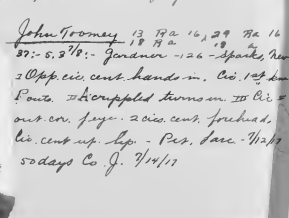 John Toomey 13 Ra 16 29 Ra 16
18 Ra 18 a
37:- 5.3 7/8:- Gardner - 126 - Sparks, Nev
2 Opp. cic. cent. hands in. Cic. 1st
Ponto. II crippled turns in. III Cic
out. cor. f eye. 2 cics. cent. forehead,
Cic. cent. up. lip. - Pet. Larc. 7/12/17
50 days Co. J. 7/14/17